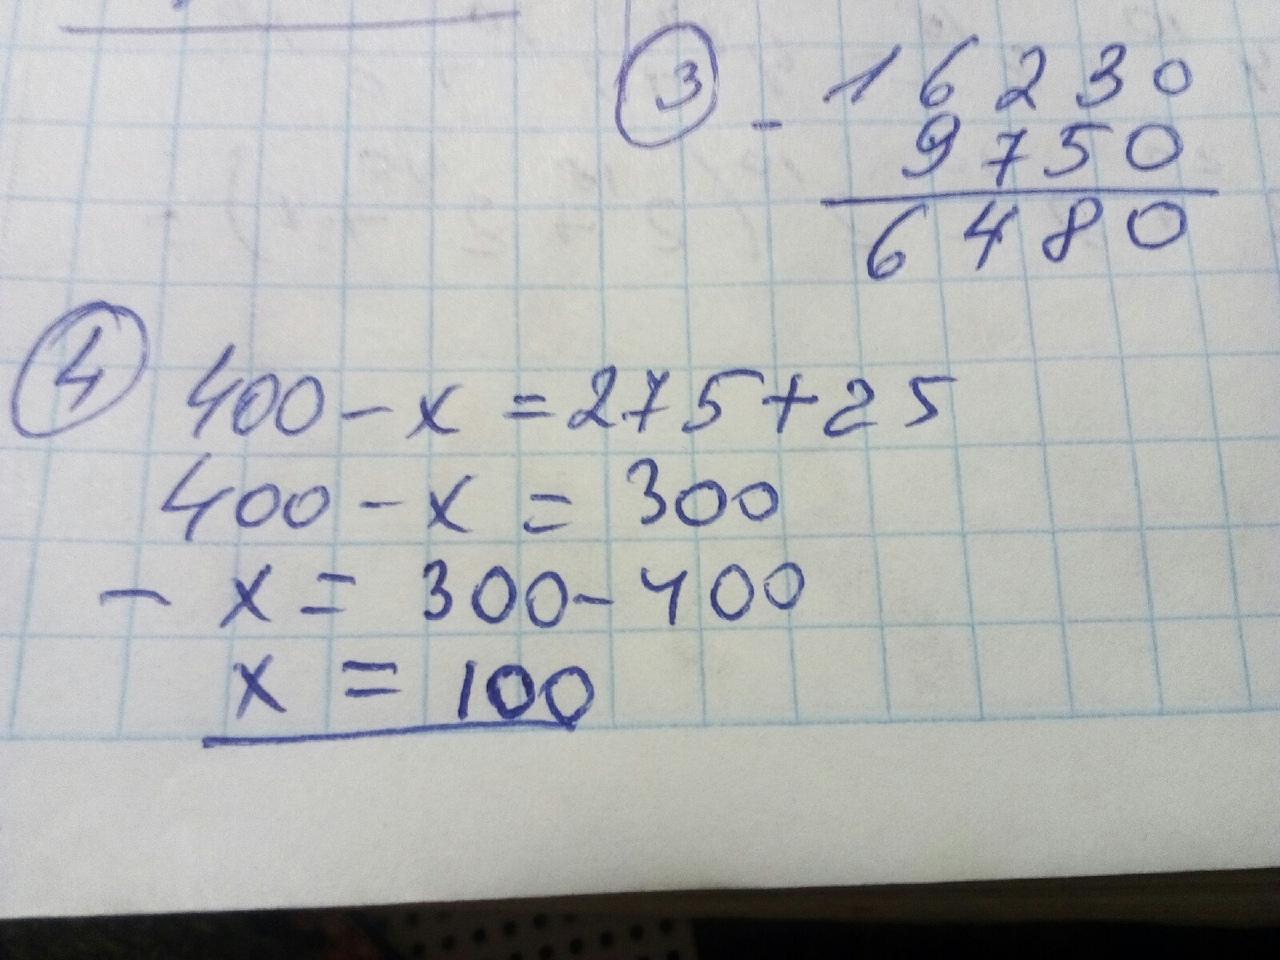 ③ - 16230
9750
6480
④ 400 - x = 275 + 25
400 - x = 300
- x = 300 - 400
x = 100